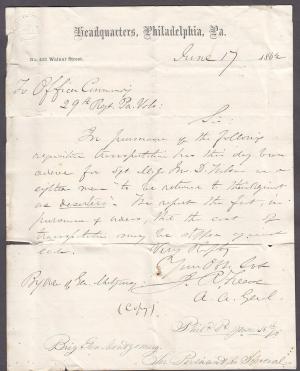 Headquarters, Philadelphia, Pa.
No. 422 Walnut Street.
June 17 1862
To Officer Comming
29th Regt. Pa. Vols:
Sir:
In pursuance of the following
requisition transportation has this day been
for Sgt Maj D. Wilson and
eighteen men to be returned to the Regiment
as deserters. We report the fact, in
pursuance of orders, that the cost of
transportation may be stopped against
each.
Very Respy
Your Obt Svt
By order of Gen. Montgomery
A. A. Genl.
(Copy)
Phila Pa June
Brig Gen Montgomery